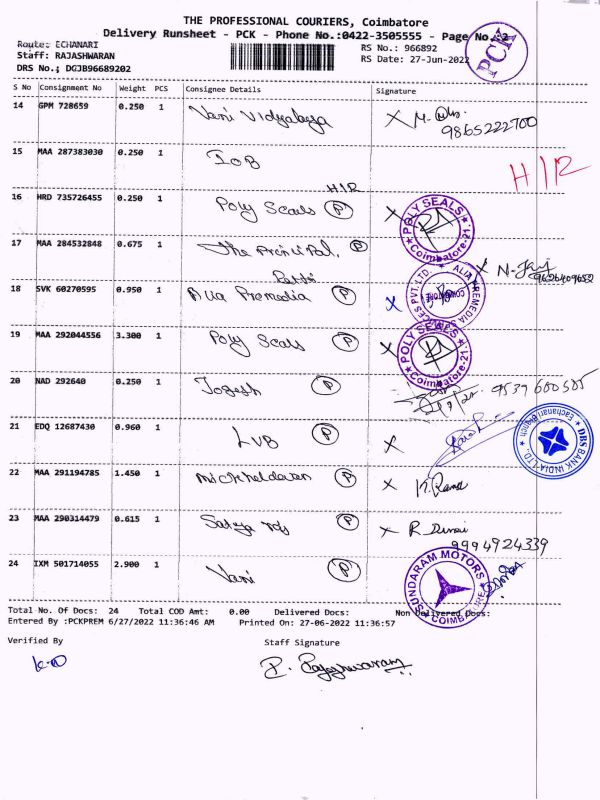 THE PROFESSIONAL COURIERS, Coimbatore
Delivery Runsheet - PCK - Phone No.:0422-3505555 - Page No. 2
Route: ECHANARI RS No.: 966892
Staff: RAJASHWARAN RS Date: 27-Jun-2022
DRS No.; DGJB96689202
PCK
S No Consignment No Weight PCS Consignee Details Signature
14 GPM 728659 0.250 1 Vani Vidyalaya X M. 9865222700
15 MAA 287383030 0.250 1 IOB HIR
HIR
16 HRD 735726455 0.250 1 Poly Seals P X
POLY SEALS Coimbatore-21
17 MAA 284532848 0.675 1 The Principal, P X N.
18 SVK 60270595 0.950 1 Alia Premedia P X
ALIA PREMEDIA PVT. LTD.
19 MAA 292044556 3.300 1 Poly Seals P X
POLY SEALS Coimbatore-21
20 NAD 292640 0.250 1 Jogesh P
21 EDQ 12687430 0.960 1 LVB P X
DBS BANK INDIA LTD. Eachanari Branch
22 MAA 291194785 1.450 1 P X
23 MAA 290314479 0.615 1 Satya P X R. Durai
9994924339
24 IXM 501714055 2.900 1 Vani P
SUNDARAM MOTORS COIMBATORE
Total No. Of Docs: 24 Total COD Amt: 0.00 Delivered Docs: Non Delivered Docs:
Entered By :PCKPREM 6/27/2022 11:36:46 AM Printed On: 27-06-2022 11:36:57
Verified By Staff Signature
P. Rajeshwaran